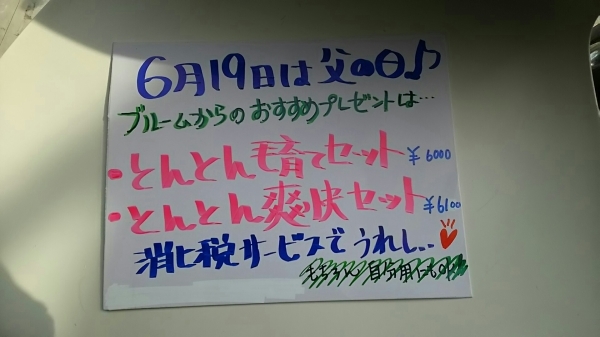 6月19日は父の日♪
ブルームからのおすすめプレゼントは…
・とんとん毛育てセット ¥6000
・とんとん爽快セット ¥6100
消ヒ税サービスでうれし..
もちろん自分用にもOK